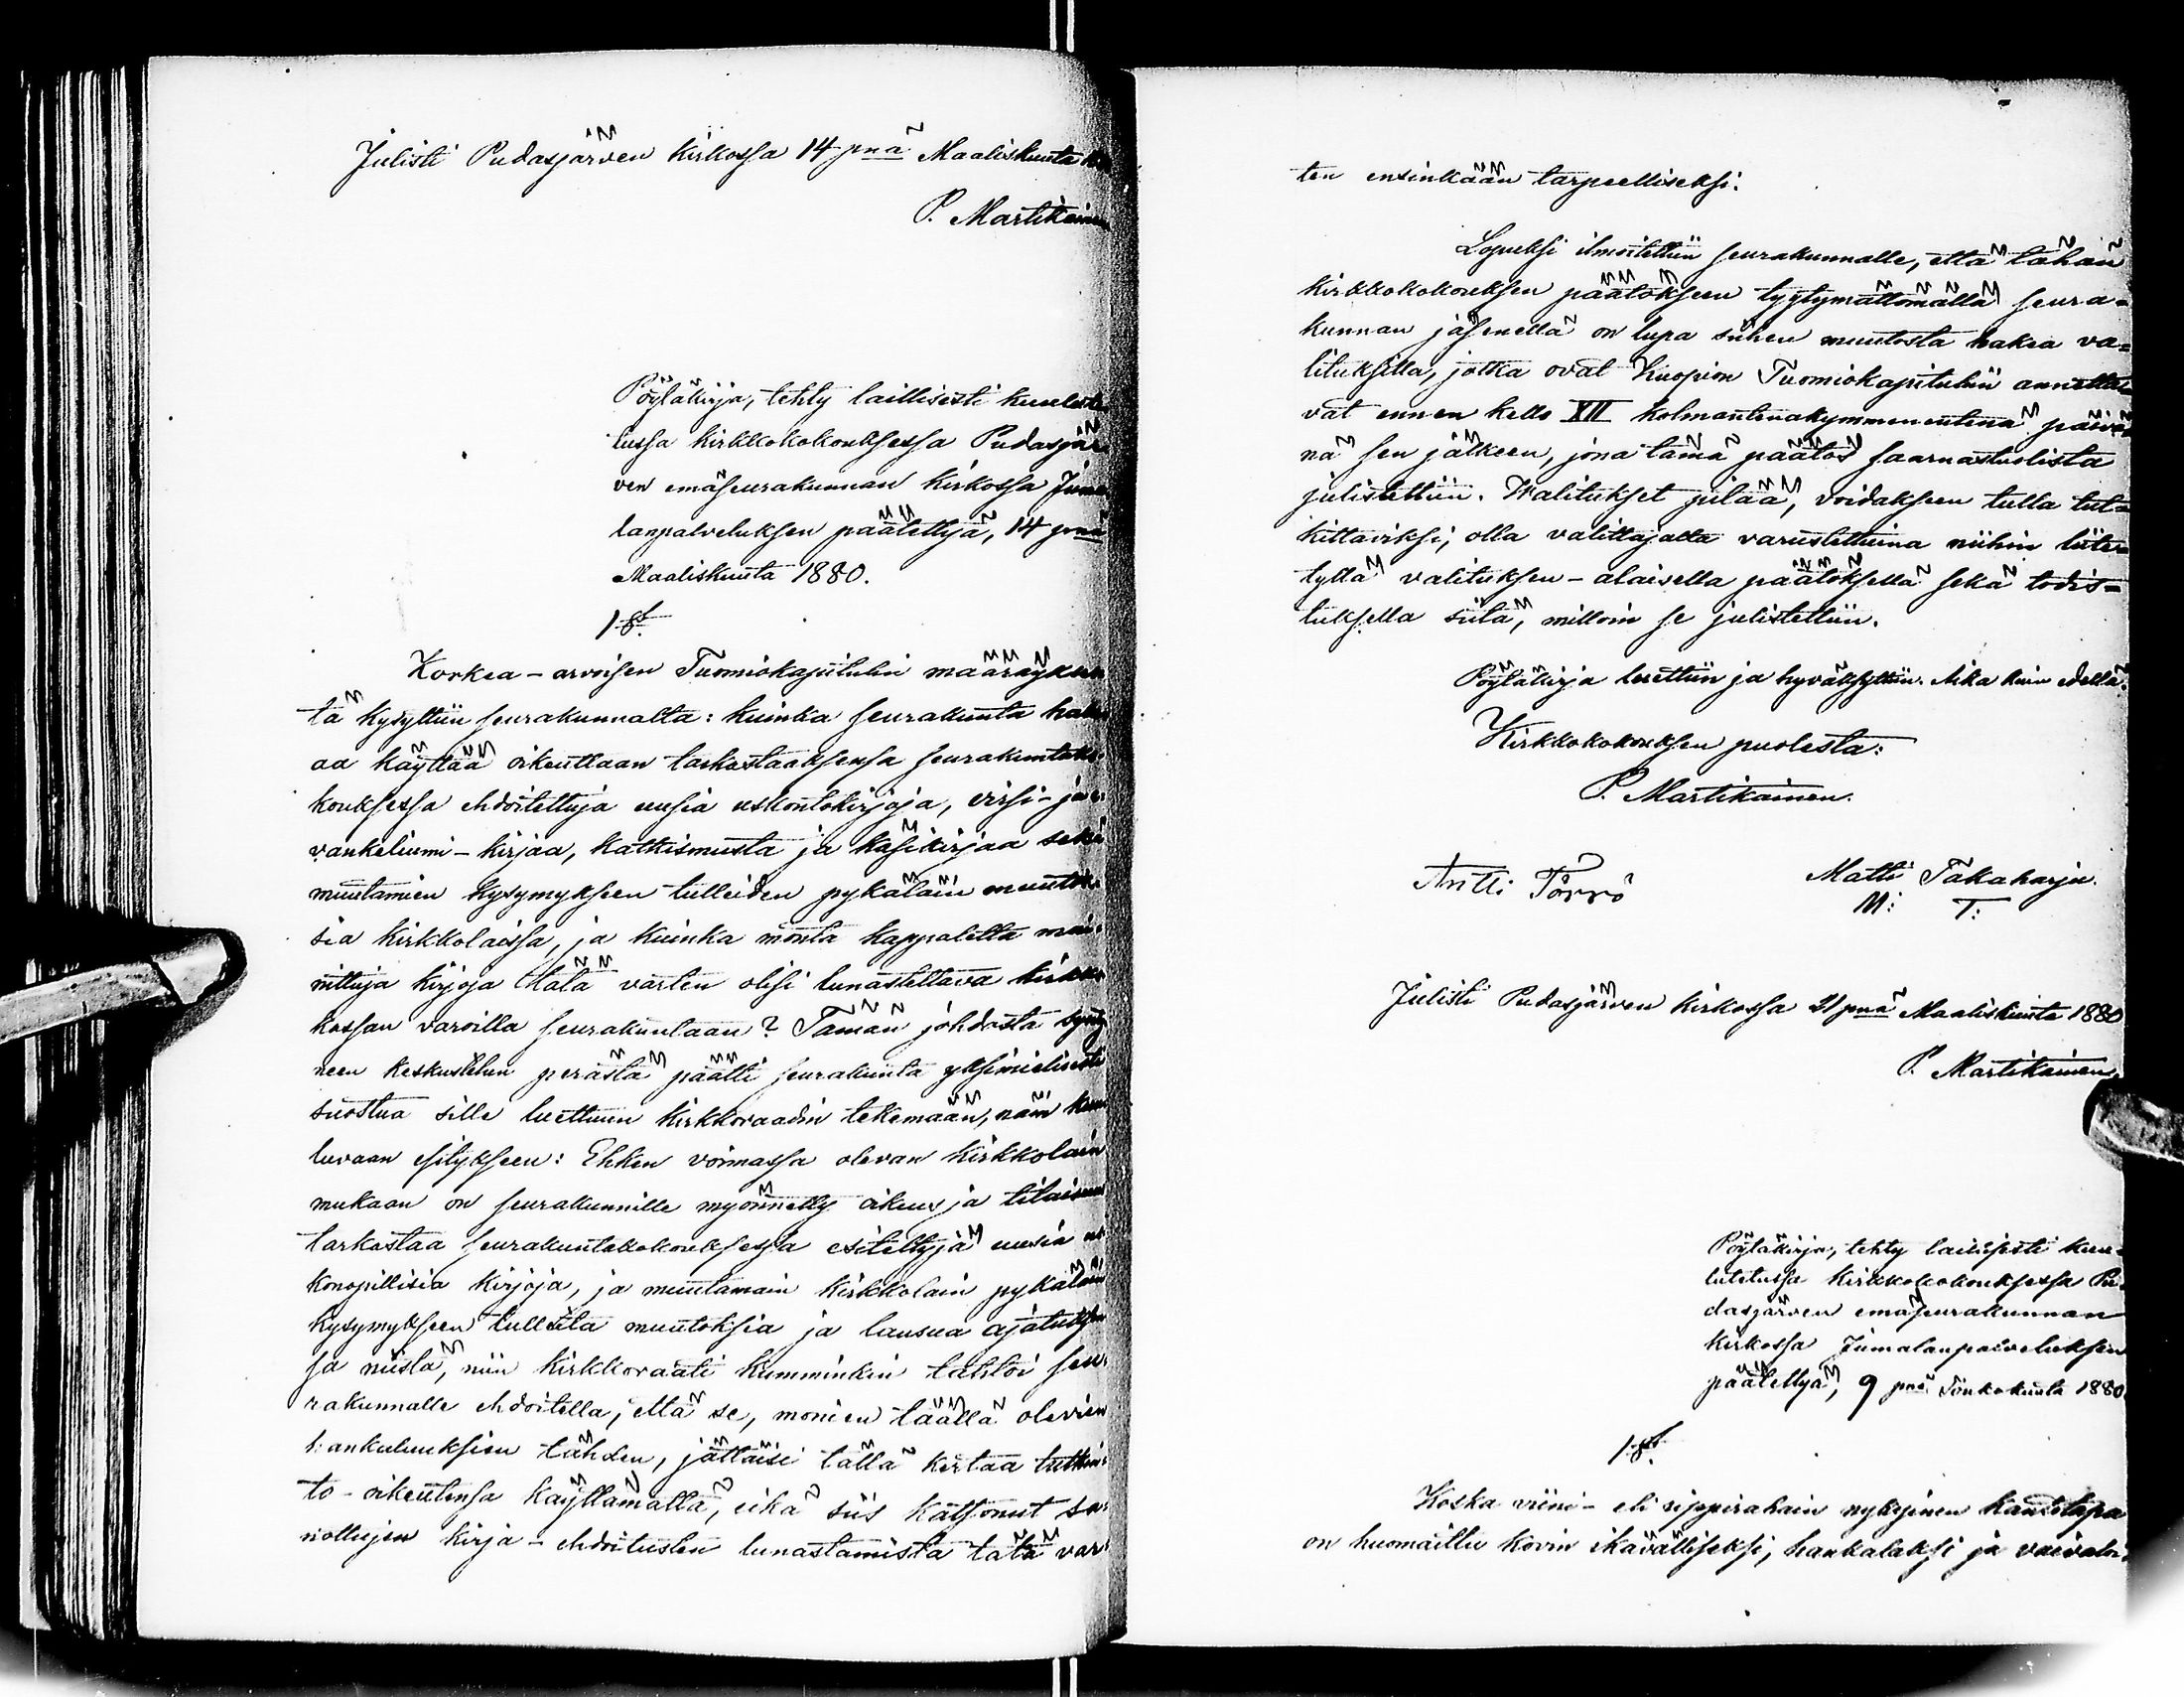 Julisti Pudasjärven kirkossa 14 pnä Maaliskuuta
P. Martikainen
Pöytäkirja, tehty laillisesti kuulute
tussa kirkkokokouksessa Pudasjär
ven emäseurakunnan kirkossa Juma
lanpalveluksen päätettyä, 14 pnä
Maaliskuuta 1880.
1 §.
Korkea-arvoisen Tuomiokapitulin määräykses
tä kysyttiin seurakunnalta: kuinka seurakunta halu
aa käyttää oikeuttaan tarkastaaksensa seurakuntako
kouksessa ehdoitettuja uusia uskontokirjoja, virsi- ja e
vankeliumi-kirjaa, katkismusta ja käsikirjaa sekä
muutamien kysymykseen tulleiden pykäläin muutok
sia kirkkolaissa, ja kuinka monta kappaletta mai
nittuja kirjoja tätä varten olisi lunastettava kirkko
kassan varoilla seurakuntaan? Tämän johdosta synty
neen keskustelun perästä päätti seurakunta yksimielisesti
suostua sille luettuun kirkkoraadin tekemään, näin kuu
luvaan esitykseen: Ehken voimassa olevan kirkkolain
mukaan on seurakunnille myönnetty oikeus ja tilaisuus
tarkastaa seurakuntakokouksessa esitettyjä uusia us
konopillisia kirjoja, ja muutamain kirkkolain pykäläin
kysymykseen tulleita muutoksia ja lausua ajatuksen
sa niistä, niin kirkkoraati kumminkin tahtoi seu
rakunnalle ehdoitella, että se, monien täällä olevien
hankaluuksien tähden, jättäisi tällä kertaa tutkin
to-oikeutensa käyttämättä, eikä siis katsonut sa
nottujen kirja-ehdoitusten lunastamista tätä var
ten ensinkään tarpeelliseksi.
Lopuksi ilmoitettiin seurakunnalle, että tähän
kirkkokokouksen päätökseen tyytymättömällä seura=
kunnan jäsenellä on lupa siihen muutosta hakea va=
lituksilla, jotka ovat Kuopion Tuomiokapituliin annetta
vat ennen kello XII kolmantenakymmenentenä päivä
nä sen jälkeen, jona tämä päätös saarnastuolista
julistettiin. Walitukset pitää, voidakseen tulla tut=
kittaviksi, olla valittajalta varustettuina niihin liite
tyllä valituksen-alaisella päätöksellä sekä todis=
tuksella siitä, milloin se julistettiin.
Pöytäkirja luettiin ja hyväksyttiin. Aika kuin edellä.
Kirkkokokouksen puolesta:
P. Martikainen.
Antti Törrö Matti Takaharju.
M: T:
Julisti Pudasjärven kirkossa 21 pnä Maaliskuuta 1880
P. Martikainen
Pöytäkirja, tehty laillisesti kuu=
lutetussa kirkkokokouksessa Pu
dasjärven emäseurakunnan
kirkossa Jumalanpalveluksen
päätettyä, 9 pnä Toukokuuta 1880
1 §.
Koska viini- eli rippirahain nykyinen kantotapa
on huomaittu kovin ikävälliseksi, hankalaksi ja vaivaloi